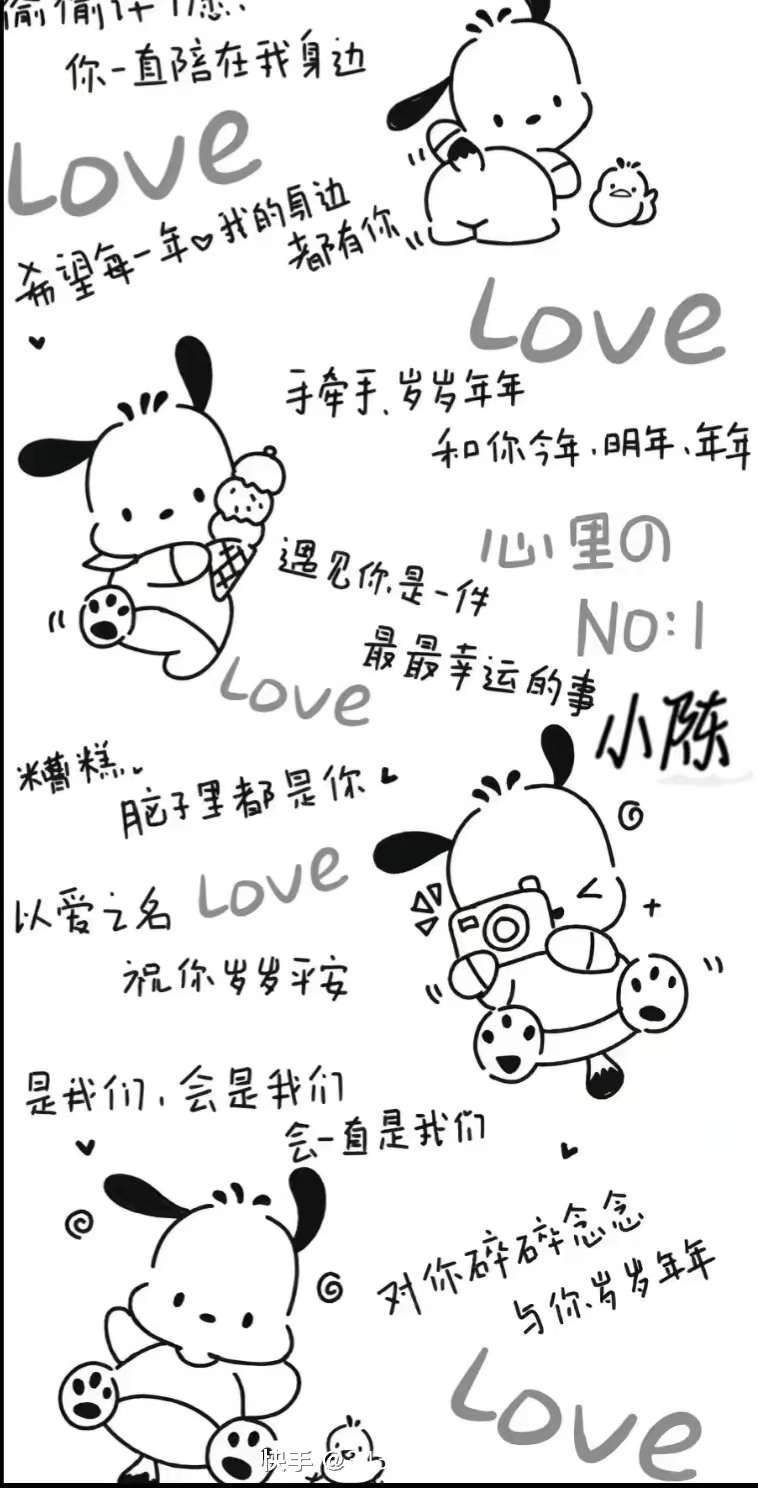 你一直陪在我身边
Love
希望每一年♡我的身边
都有你
Love
手牵手、岁岁年年
和你今年、明年、年年
心里の
NO:1
遇见你是一件
最最幸运的事
Love
小陈
糟糕、
脑子里都是你
以爱之名
Love
祝你岁岁平安
是我们，会是我们
会一直是我们
对你碎碎念念
与你岁岁年年
Love
快手